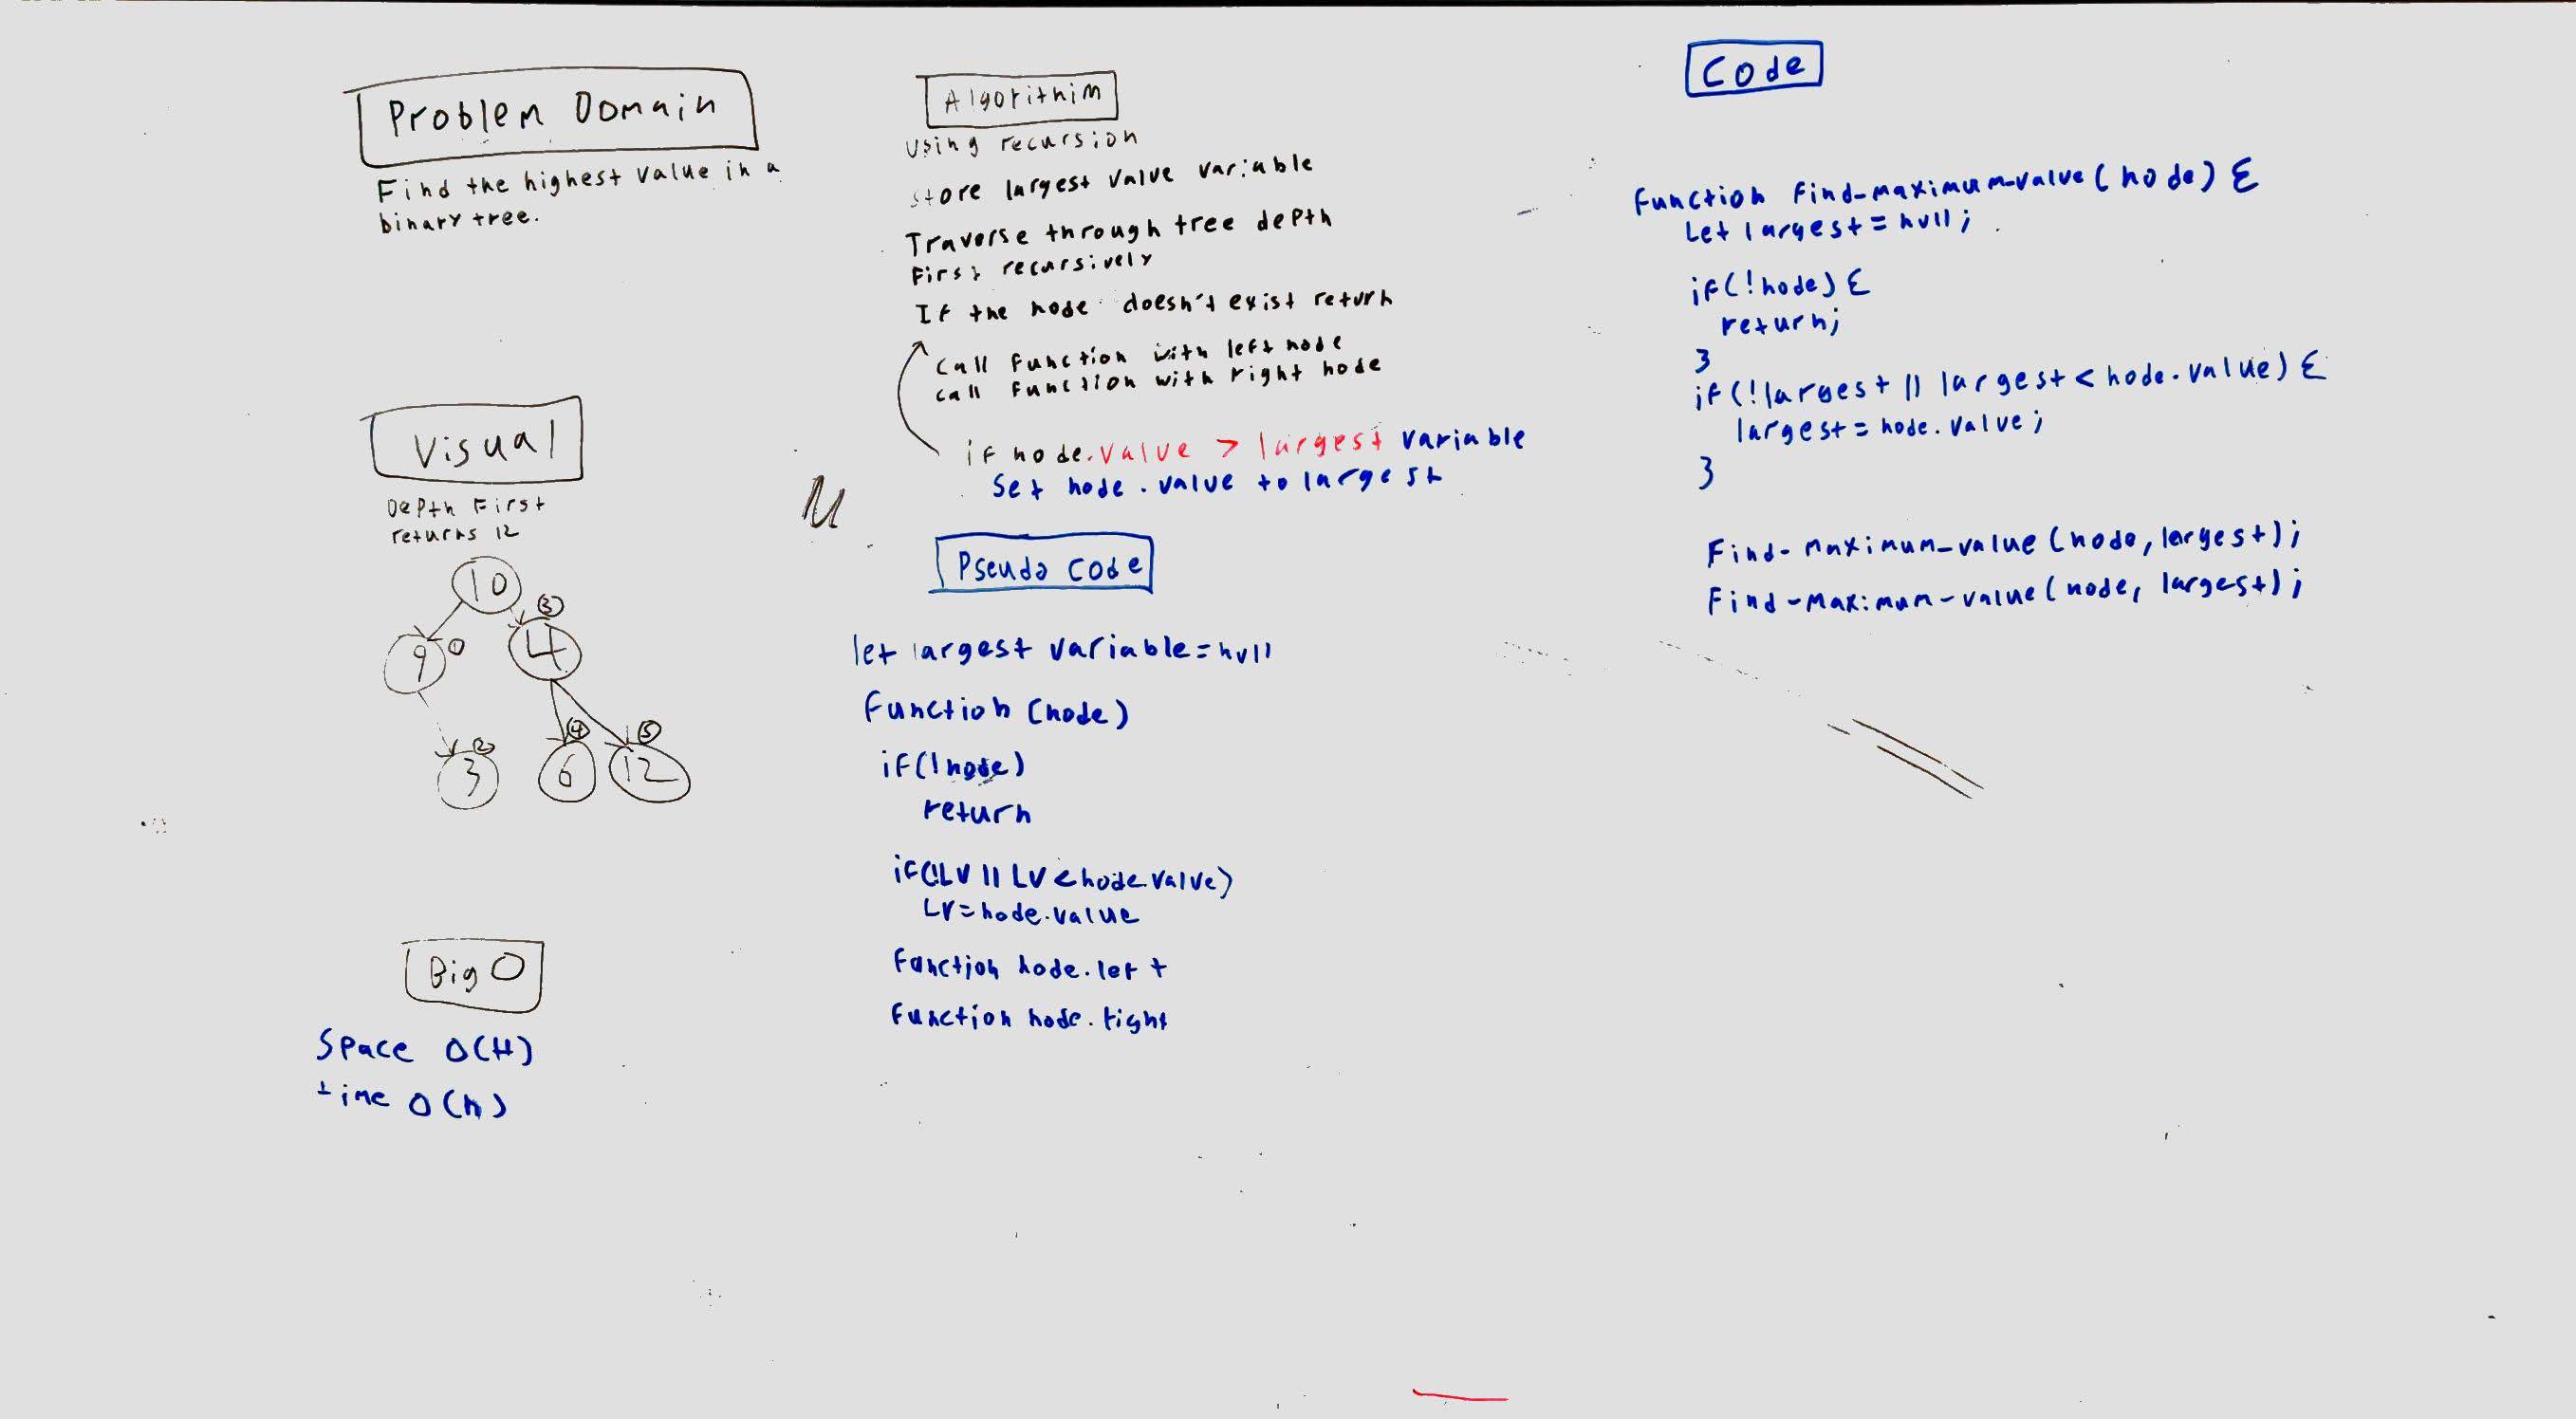 Problem Domain
Find the highest value in a
binary tree.
Visual
Depth First
returns 12
10
3
9
0
4
2
4
5
3
6
12
Big O
Space O(H)
time O(n)
Algorithim
Using recursion
store largest value variable
Traverse through tree depth
First recursively
If the node doesn't exist return
call function with left node
call function with right node
if node.value > largest variable
Set node.value to largest
Pseudo Code
let largest variable = null
Function (node)
if(!node)
return
if(!LV || LV < node.value)
LV = node.value
Function node.left
Function node.right
Code
Function Find-maximum-value(node) {
Let largest = null;
if(!node) {
return;
}
if(!largest || largest < node.value) {
largest = node.value;
}
Find-maximum-value(node, largest);
Find-maximum-value(node, largest);